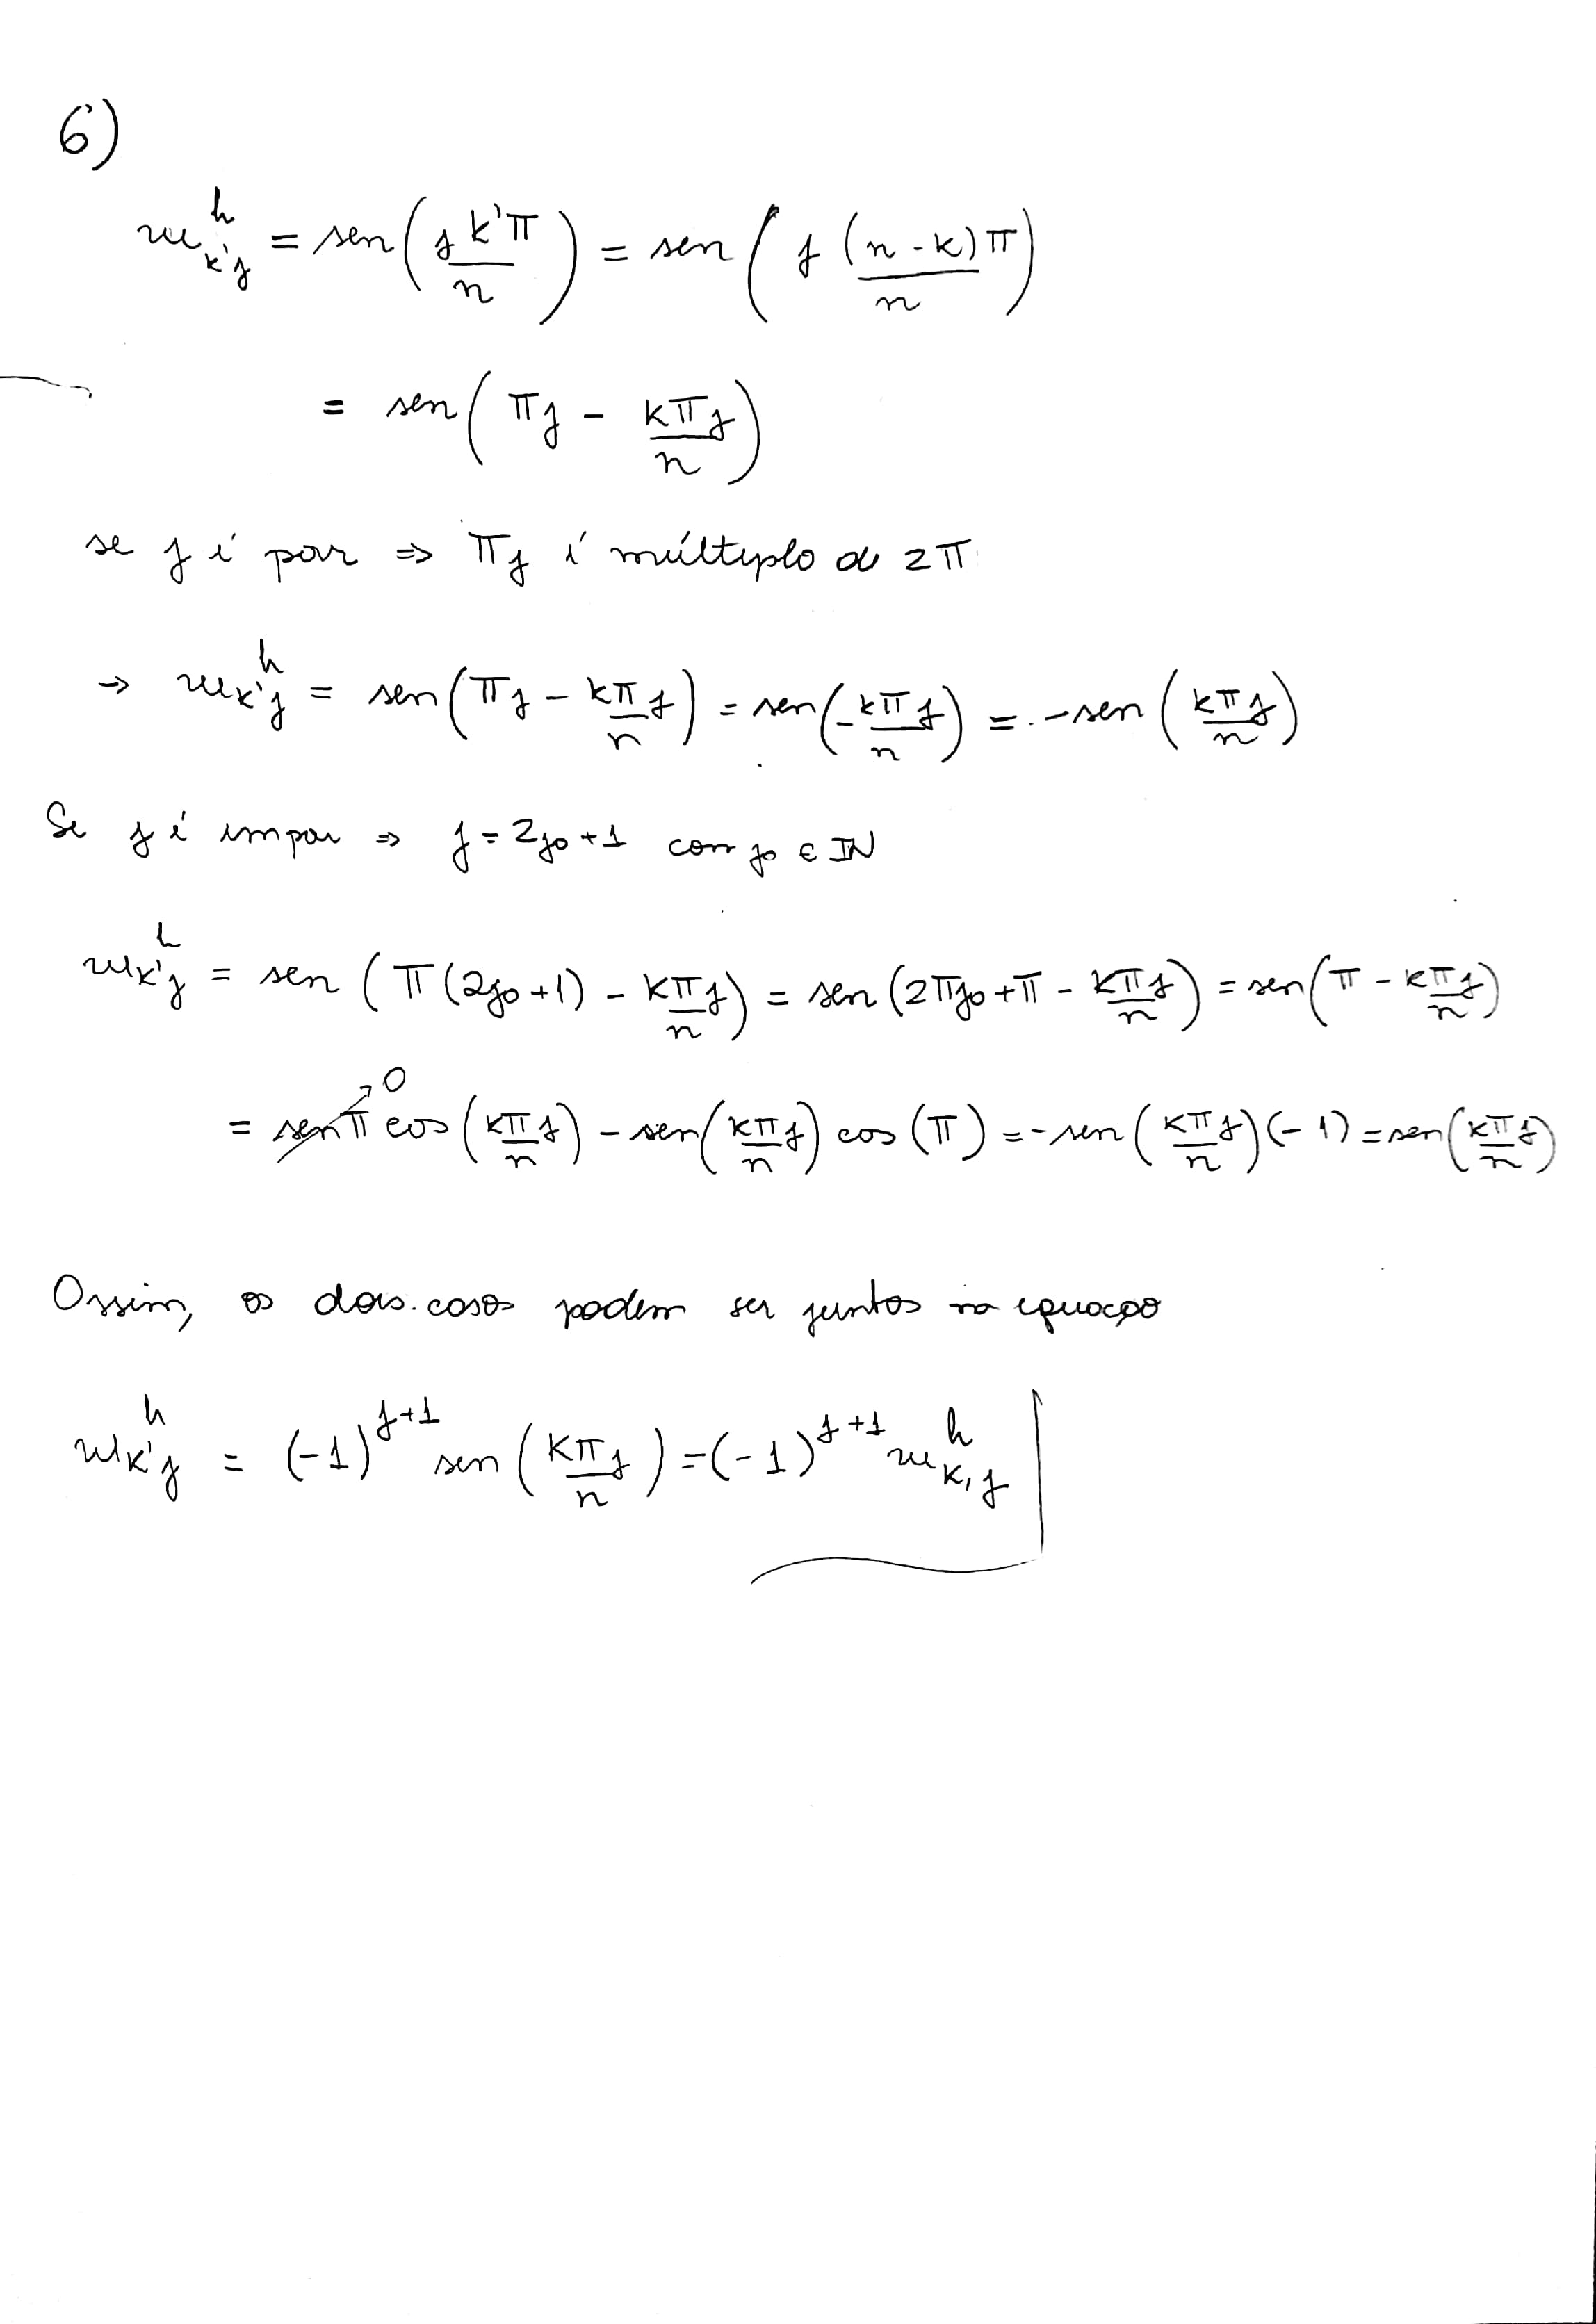 6)
w^h_{k'j} = sen(j k'π / n) = sen(j (n - k) π / n)
= sen(πj - kπj / n)
se j é par ⇒ πj é múltiplo de 2π
→ w^h_{k'j} = sen(πj - kπj / n) = sen(-kπj / n) = -sen(kπj / n)
Se j é impar ⇒ j = 2j₀ + 1 com j₀ ∈ ℕ
w^h_{k'j} = sen(π(2j₀ + 1) - kπj / n) = sen(2πj₀ + π - kπj / n) = sen(π - kπj / n)
= senπ→0 cos(kπj / n) - sen(kπj / n) cos(π) = -sen(kπj / n)(-1) = sen(kπj / n)
Assim, os dois casos podem ser juntos na equação
w^h_{k'j} = (-1)^{j+1} sen(kπj / n) = (-1)^{j+1} w^h_{k,j}